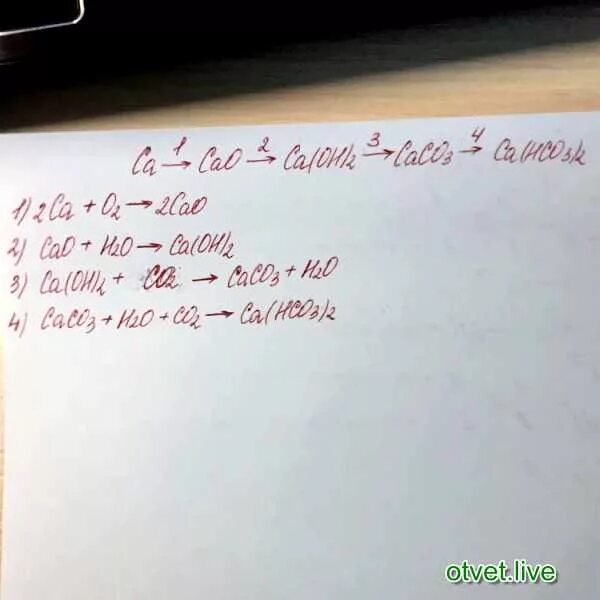 Ca 1→ CaO 2→ Ca(OH)2 3→ CaCO3 4→ Ca(HCO3)2
1) 2Ca + O2 → 2CaO
2) CaO + H2O → Ca(OH)2
3) Ca(OH)2 + CO2 → CaCO3 + H2O
4) CaCO3 + H2O + CO2 → Ca(HCO3)2
otvet.live